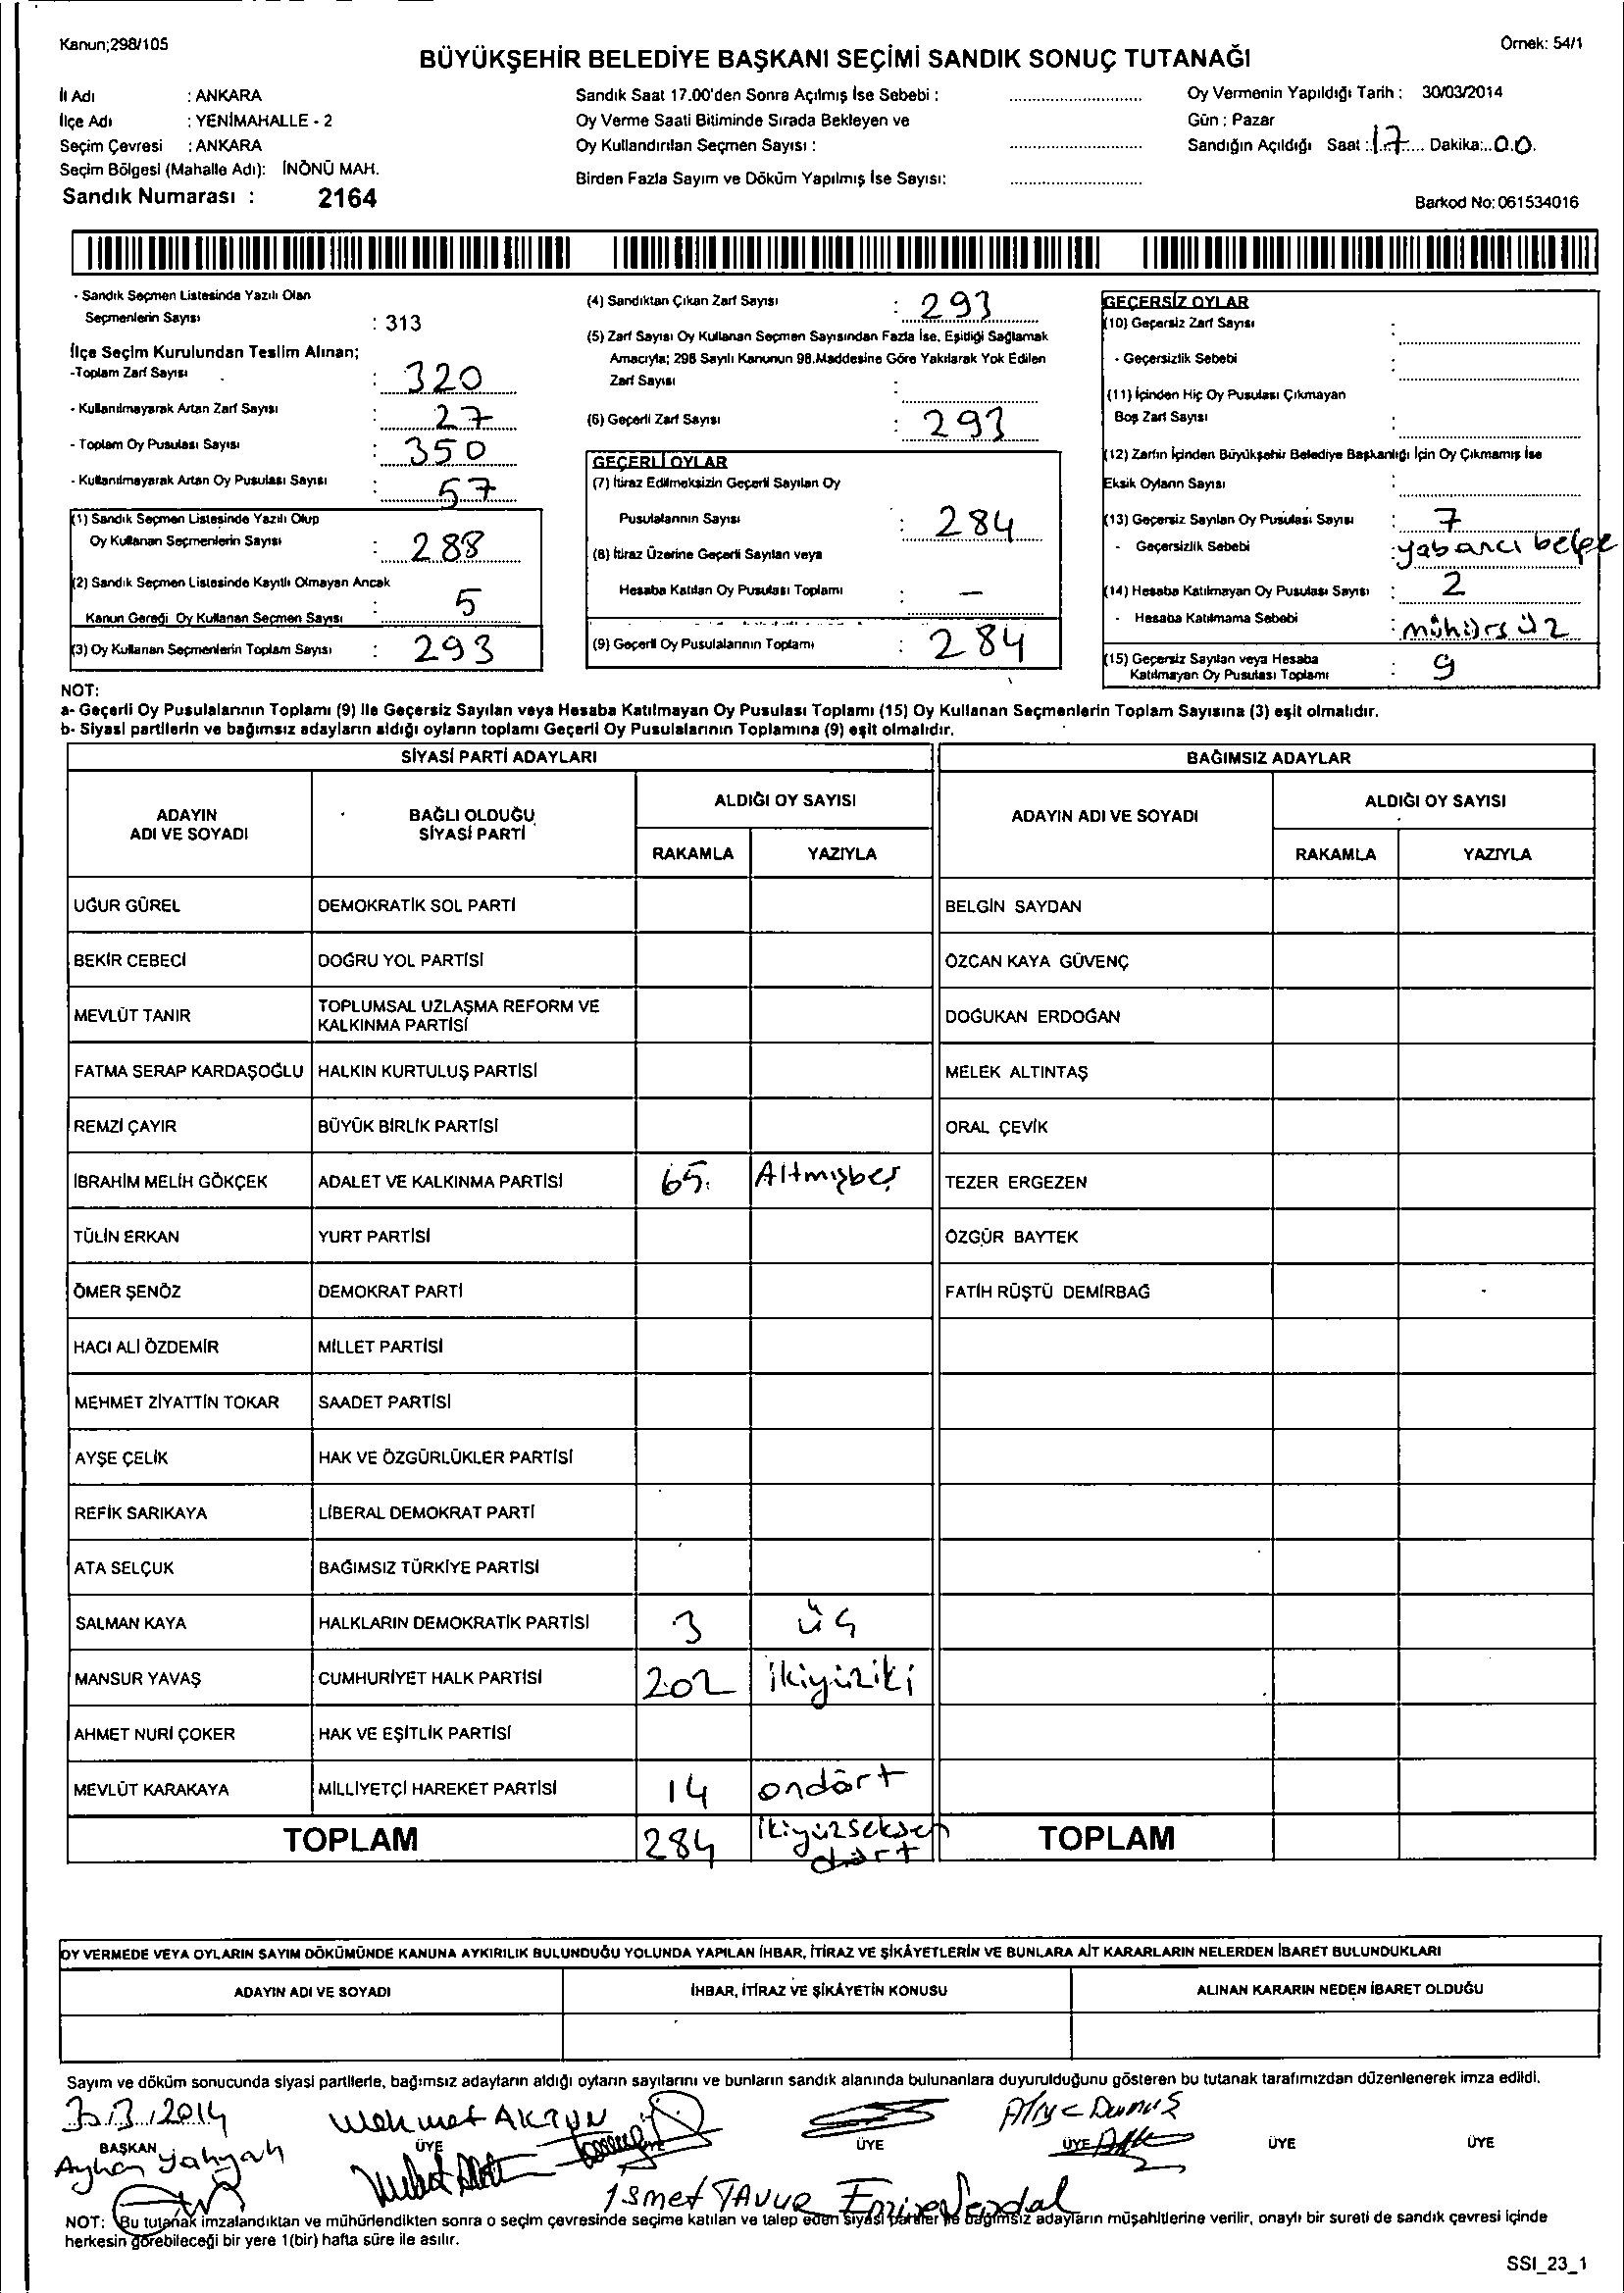 Kanun;298/105
Örnek: 54/1
BÜYÜKŞEHİR BELEDİYE BAŞKANI SEÇİMİ SANDIK SONUÇ TUTANAĞI
İl Adı : ANKARA
İlçe Adı : YENİMAHALLE - 2
Seçim Çevresi : ANKARA
Seçim Bölgesi (Mahalle Adı): İNÖNÜ MAH.
Sandık Numarası : 2164
Sandık Saat 17.00'den Sonra Açılmış İse Sebebi :
Oy Verme Saati Bitiminde Sırada Bekleyen ve
Oy Kullandırılan Seçmen Sayısı :
Birden Fazla Sayım ve Döküm Yapılmış İse Sayısı:
Oy Vermenin Yapıldığı Tarih : 30/03/2014
Gün : Pazar
Sandığın Açıldığı Saat : 17 Dakika: 00
Barkod No: 061534016
- Sandık Seçmen Listesinde Yazılı Olan
Seçmenlerin Sayısı : 313
İlçe Seçim Kurulundan Teslim Alınan;
-Toplam Zarf Sayısı : 320
- Kullanılmayarak Artan Zarf Sayısı : 27
- Toplam Oy Pusulası Sayısı : 350
- Kullanılmayarak Artan Oy Pusulası Sayısı : 57
(1) Sandık Seçmen Listesinde Yazılı Olup
Oy Kullanan Seçmenlerin Sayısı : 288
(2) Sandık Seçmen Listesinde Kayıtlı Olmayan Ancak
Kanun Gereği Oy Kullanan Seçmen Sayısı : 5
(3) Oy Kullanan Seçmenlerin Toplam Sayısı : 293
(4) Sandıktan Çıkan Zarf Sayısı : 293
(5) Zarf Sayısı Oy Kullanan Seçmen Sayısından Fazla İse, Eşitliği Sağlamak
Amacıyla; 298 Sayılı Kanunun 98.Maddesine Göre Yakılarak Yok Edilen
Zarf Sayısı :
(6) Geçerli Zarf Sayısı : 293
GEÇERLİ OYLAR
(7) İtiraz Edilmeksizin Geçerli Sayılan Oy
Pusulalarının Sayısı : 284
(8) İtiraz Üzerine Geçerli Sayılan veya
Hesaba Katılan Oy Pusulası Toplamı : —
(9) Geçerli Oy Pusulalarının Toplamı : 284
GEÇERSİZ OYLAR
(10) Geçersiz Zarf Sayısı :
- Geçersizlik Sebebi :
(11) İçinden Hiç Oy Pusulası Çıkmayan
Boş Zarf Sayısı :
(12) Zarfın İçinden Büyükşehir Belediye Başkanlığı İçin Oy Çıkmamış İse
Eksik Oyların Sayısı :
(13) Geçersiz Sayılan Oy Pusulası Sayısı : 7
- Geçersizlik Sebebi : yabancı belge
(14) Hesaba Katılmayan Oy Pusulası Sayısı : 2
- Hesaba Katılmama Sebebi : mühürsüz
(15) Geçersiz Sayılan veya Hesaba
Katılmayan Oy Pusulası Toplamı : 9
NOT:
a- Geçerli Oy Pusulalarının Toplamı (9) ile Geçersiz Sayılan veya Hesaba Katılmayan Oy Pusulası Toplamı (15) Oy Kullanan Seçmenlerin Toplam Sayısına (3) eşit olmalıdır.
b- Siyasi partilerin ve bağımsız adayların aldığı oyların toplamı Geçerli Oy Pusulalarının Toplamına (9) eşit olmalıdır.
SİYASİ PARTİ ADAYLARI BAĞIMSIZ ADAYLAR
ADAYIN ADI VE SOYADI BAĞLI OLDUĞU SİYASİ PARTİ ALDIĞI OY SAYISI ADAYIN ADI VE SOYADI ALDIĞI OY SAYISI
RAKAMLA YAZIYLA RAKAMLA YAZIYLA
UĞUR GÜREL DEMOKRATİK SOL PARTİ BELGİN SAYDAN
BEKİR CEBECİ DOĞRU YOL PARTİSİ ÖZCAN KAYA GÜVENÇ
MEVLÜT TANIR TOPLUMSAL UZLAŞMA REFORM VE KALKINMA PARTİSİ DOĞUKAN ERDOĞAN
FATMA SERAP KARDAŞOĞLU HALKIN KURTULUŞ PARTİSİ MELEK ALTINTAŞ
REMZİ ÇAYIR BÜYÜK BİRLİK PARTİSİ ORAL ÇEVİK
İBRAHİM MELİH GÖKÇEK ADALET VE KALKINMA PARTİSİ 65 Altmışbeş TEZER ERGEZEN
TÜLİN ERKAN YURT PARTİSİ ÖZGÜR BAYTEK
ÖMER ŞENÖZ DEMOKRAT PARTİ FATİH RÜŞTÜ DEMİRBAĞ
HACI ALİ ÖZDEMİR MİLLET PARTİSİ
MEHMET ZİYATTİN TOKAR SAADET PARTİSİ
AYŞE ÇELİK HAK VE ÖZGÜRLÜKLER PARTİSİ
REFİK SARIKAYA LİBERAL DEMOKRAT PARTİ
ATA SELÇUK BAĞIMSIZ TÜRKİYE PARTİSİ
SALMAN KAYA HALKLARIN DEMOKRATİK PARTİSİ 3 üç
MANSUR YAVAŞ CUMHURİYET HALK PARTİSİ 202 ikiyüziki
AHMET NURİ ÇOKER HAK VE EŞİTLİK PARTİSİ
MEVLÜT KARAKAYA MİLLİYETÇİ HAREKET PARTİSİ 14 ondört
TOPLAM 284 ikiyüzseksen dört TOPLAM
OY VERMEDE VEYA OYLARIN SAYIM DÖKÜMÜNDE KANUNA AYKIRILIK BULUNDUĞU YOLUNDA YAPILAN İHBAR, İTİRAZ VE ŞİKÂYETLERİN VE BUNLARA AİT KARARLARIN NELERDEN İBARET BULUNDUKLARI
ADAYIN ADI VE SOYADI İHBAR, İTİRAZ VE ŞİKÂYETİN KONUSU ALINAN KARARIN NEDEN İBARET OLDUĞU
Sayım ve döküm sonucunda siyasi partilerle, bağımsız adayların aldığı oyların sayılarını ve bunların sandık alanında bulunanlara duyurulduğunu gösteren bu tutanak tarafımızdan düzenlenerek imza edildi.
30.3.2014 Mehmet Durmuş
BAŞKAN ÜYE ÜYE ÜYE ÜYE ÜYE ÜYE
Ayhan
İsmet TAVUR
NOT: Bu tutanak imzalandıktan ve mühürlendikten sonra o seçim çevresinde seçime katılan ve talep eden siyasi partiler ile bağımsız adayların müşahitlerine verilir, onaylı bir sureti de sandık çevresi içinde
herkesin görebileceği bir yere 1(bir) hafta süre ile asılır.
SSI_23_1